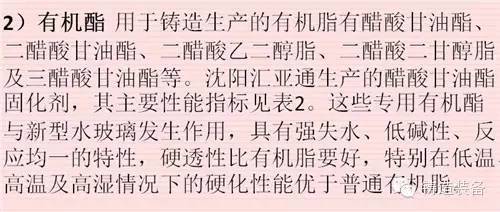 2）有机酯 用于铸造生产的有机脂有醋酸甘油酯、
二醋酸甘油酯、二醋酸乙二醇脂、二醋酸二甘醇脂
及三醋酸甘油酯等。沈阳汇亚通生产的醋酸甘油酯
固化剂，其主要性能指标见表2。这些专用有机酯
与新型水玻璃发生作用，具有强失水、低碱性、反
应均一的特性，硬透性比有机脂要好，特别在低温、
高温及高湿情况下的硬化性能优于普通有机脂
铸造装备